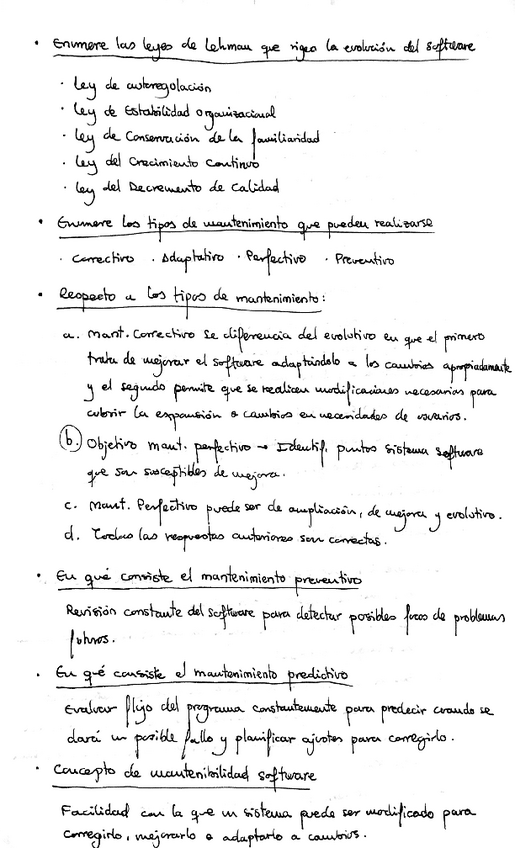 · Enumere las leyes de Lehman que rigen la evolución del software
· Ley de autoregulación
· Ley de Estabilidad organizacional
· Ley de Conservación de la familiaridad
· Ley del Crecimiento Continuo
· Ley del Decremento de Calidad
· Enumere los tipos de mantenimiento que pueden realizarse
· Correctivo · Adaptativo · Perfectivo · Preventivo
· Respecto a los tipos de mantenimiento:
a. Mant. Correctivo se diferencia del evolutivo en que el primero
trata de mejorar el software adaptándolo a los cambios apropiadamente
y el segundo permite que se realicen modificaciones necesarias para
cubrir la expansión o cambios en necesidades de usuarios.
b. Objetivo mant. perfectivo → Identif. puntos sistema software
que son susceptibles de mejora.
c. Mant. Perfectivo puede ser de ampliación, de mejora y evolutivo.
d. Todas las respuestas anteriores son correctas.
· En qué consiste el mantenimiento preventivo
Revisión constante del software para detectar posibles focos de problemas
futuros.
· En qué consiste el mantenimiento predictivo
Evaluar flujo del programa constantemente para predecir cuando se
dará un posible fallo y planificar ajustes para corregirlo.
· Concepto de mantenibilidad software
Facilidad con la que un sistema puede ser modificado para
corregirlo, mejorarlo o adaptarlo a cambios.